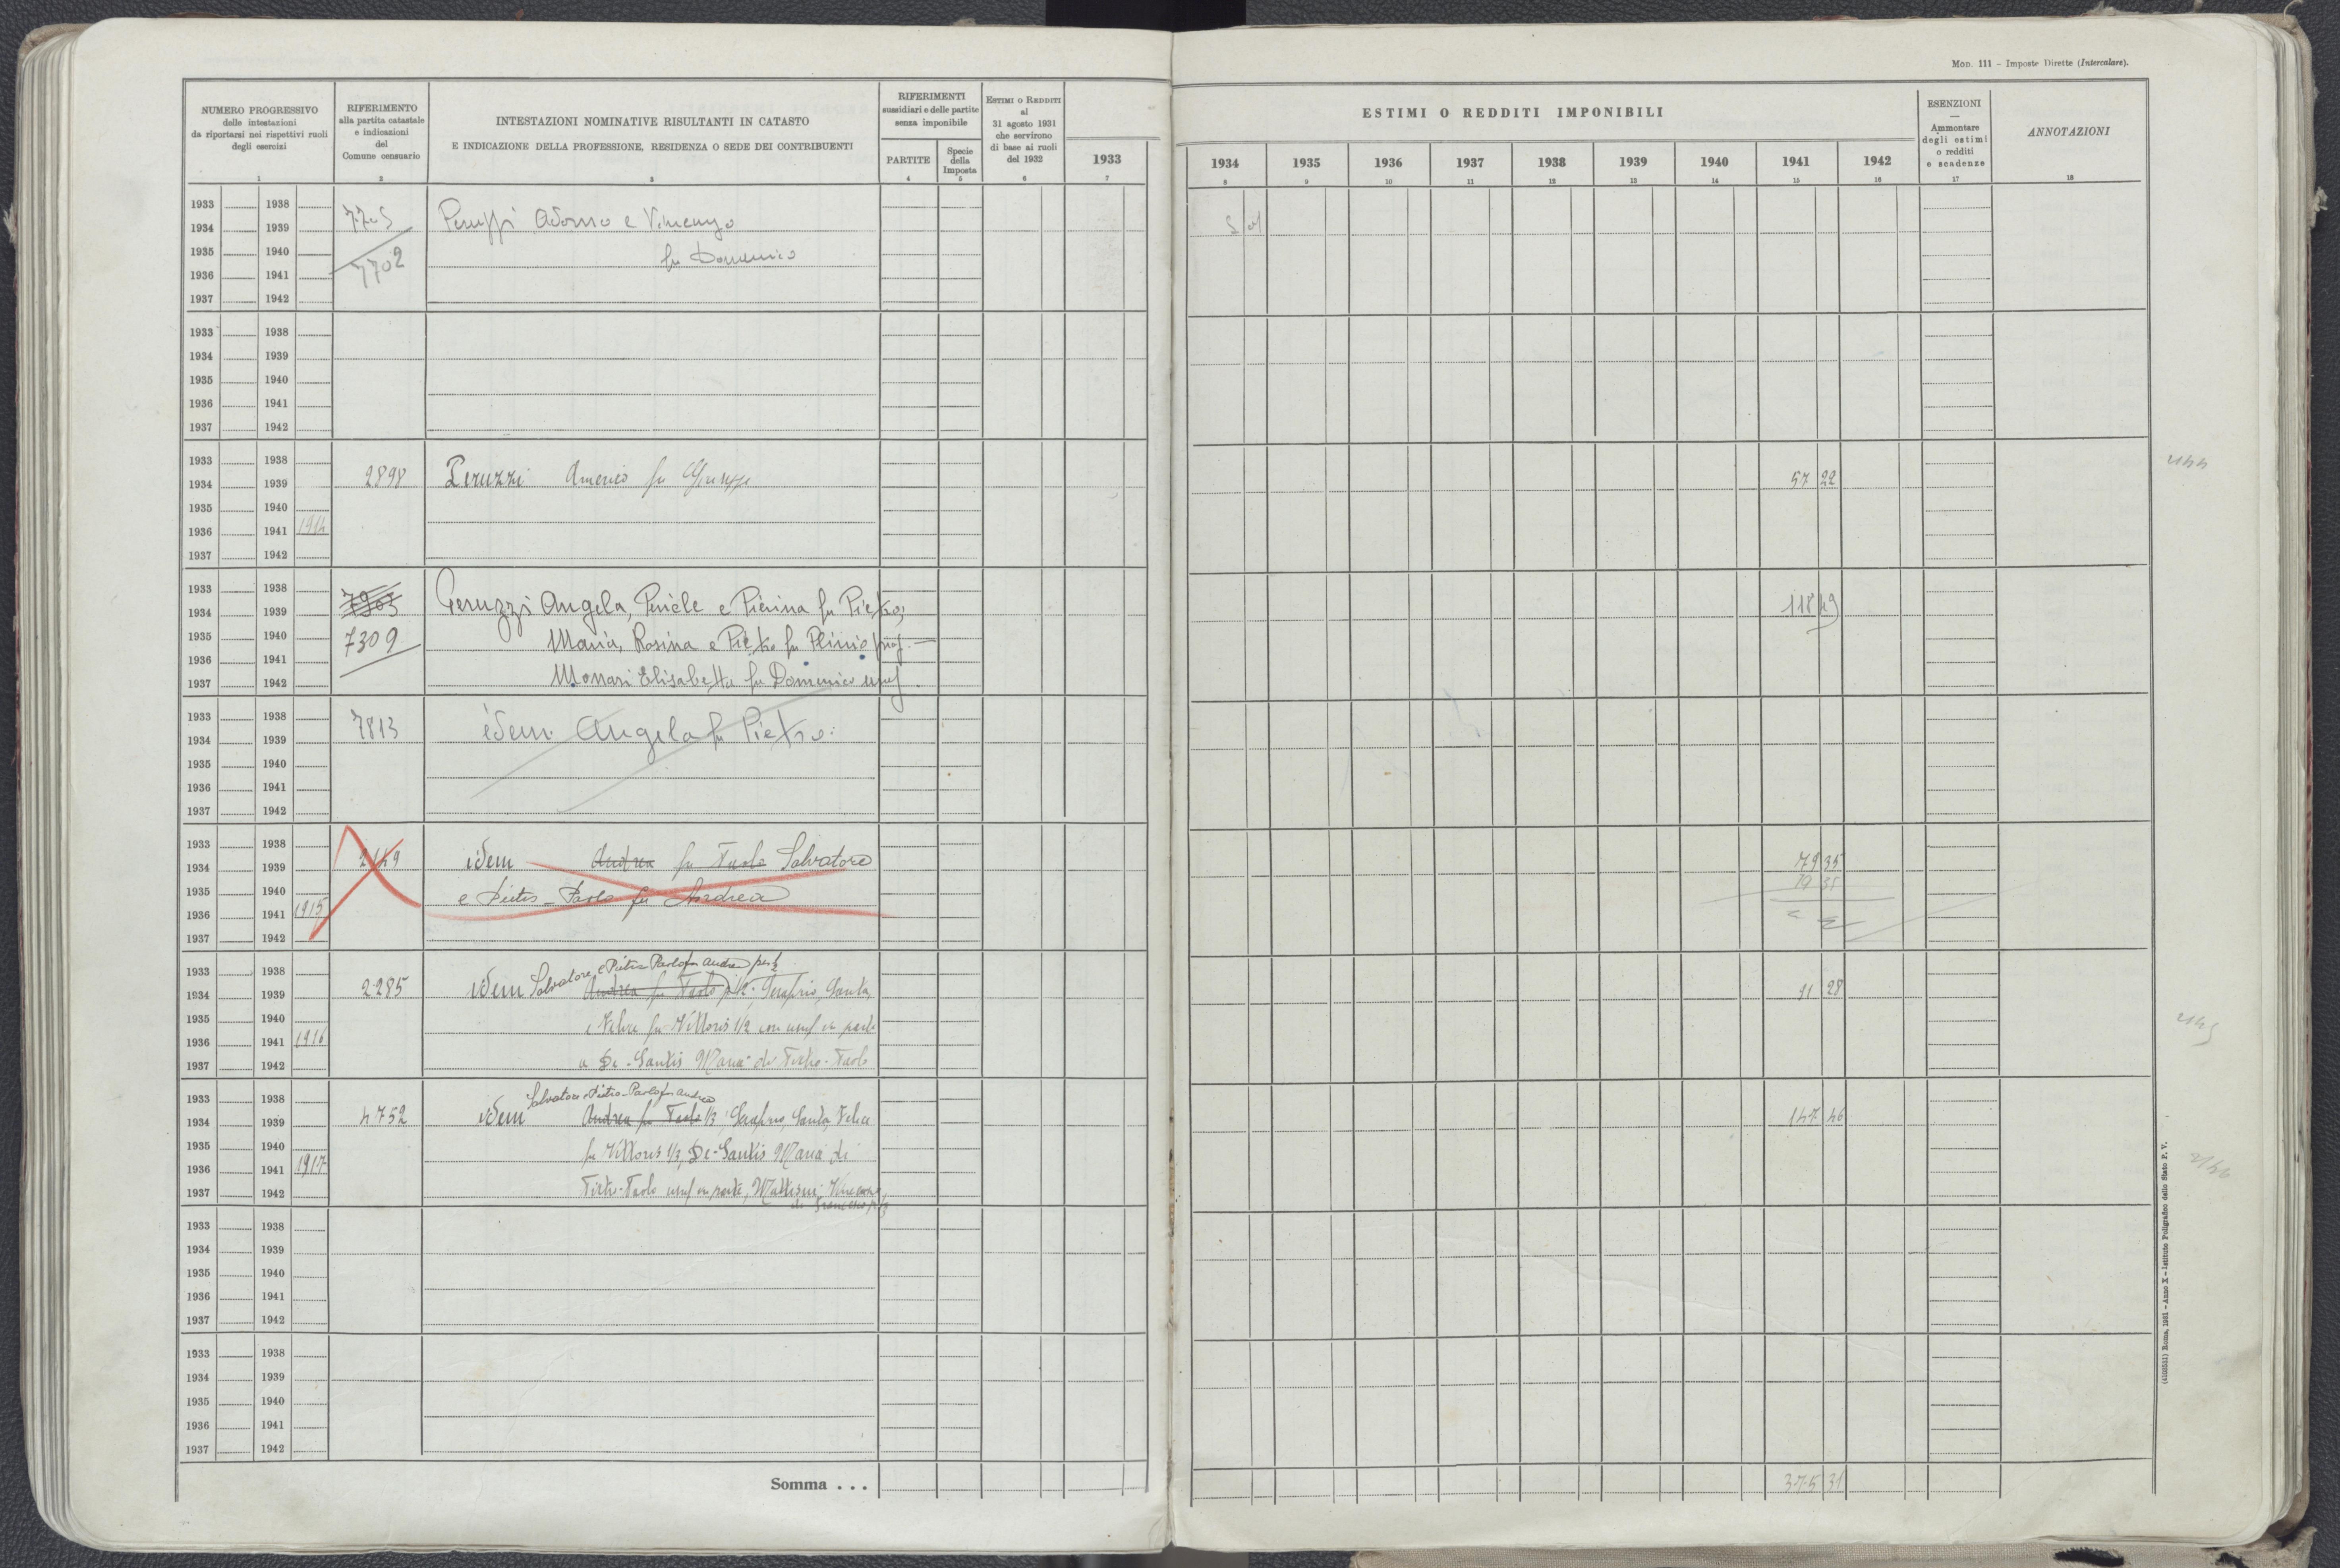 Mod. 111 – Imposte Dirette (Intercalare).
NUMERO PROGRESSIVO
delle intestazioni
da riportarsi nei rispettivi ruoli
degli esercizi
1
RIFERIMENTO
alla partita catastale
e indicazioni
del
Comune censuario
2
INTESTAZIONI NOMINATIVE RISULTANTI IN CATASTO
E INDICAZIONE DELLA PROFESSIONE, RESIDENZA O SEDE DEI CONTRIBUENTI
3
RIFERIMENTI
sussidiari e delle partite
senza imponibile
PARTITE
4
Specie
della
Imposta
5
Estimi o Redditi
al
31 agosto 1931
che servirono
di base ai ruoli
del 1932
6
1933
7
ESTIMI O REDDITI IMPONIBILI
1934 1935 1936 1937 1938 1939 1940 1941 1942
8 9 10 11 12 13 14 15 16
ESENZIONI
—
Ammontare
degli estimi
o redditi
e scadenze
17
ANNOTAZIONI
18
1933 1938
1934 1939 7705 Peruzzi Adorno e Vincenzo
1935 1940 7702 fu Domenico
1936 1941
1937 1942
1933 1938
1934 1939
1935 1940
1936 1941
1937 1942
1933 1938
1934 1939 2898 Peruzzi Americo fu Giuseppe 57 22
1935 1940
1936 1941 1914
1937 1942
1933 1938 7903 Peruzzi Angela, Pericle e Pierina fu Pietro,
1934 1939 118 49
1935 1940 7309 Maria, Rosina e Pietro fu Plinio prop.
1936 1941
1937 1942 Monari Elisabetta fu Domenico usuf.
1933 1938 7813 idem Angela fu Pietro
1934 1939
1935 1940
1936 1941
1937 1942
1933 1938
1934 1939 2149 idem Andrea fu Paolo Salvatore 79 35
1935 1940 e Pietro-Paolo fu Andrea 79 35
1936 1941 1915
1937 1942
1933 1938 Salvatore e Pietro Paolo fu Andrea per ½
1934 1939 2285 idem Andrea fu Paolo p 1/2 Serafino, Santa, 91 28
1935 1940 e Felice fu Vittorio 1/2 con usuf in parte
1936 1941 1916
1937 1942 a De-Santis Maria di Pietro-Paolo
1933 1938 Salvatore e Pietro-Paolo fu Andrea
1934 1939 4752 idem Andrea fu Paolo 1/3, Serafino, Santa, Felice 147 46
1935 1940 fu Vittorio 1/3, De-Santis Maria di
1936 1941 1917
1937 1942 Pietro-Paolo usuf in parte, Vincenzo
di Francesco p 1/3
1933 1938
1934 1939
1935 1940
1936 1941
1937 1942
1933 1938
1934 1939
1935 1940
1936 1941
1937 1942
Somma . . . 375 31
2144
2145
2146
(4103551) Roma, 1931 – Anno X – Istituto Poligrafico dello Stato P. V.